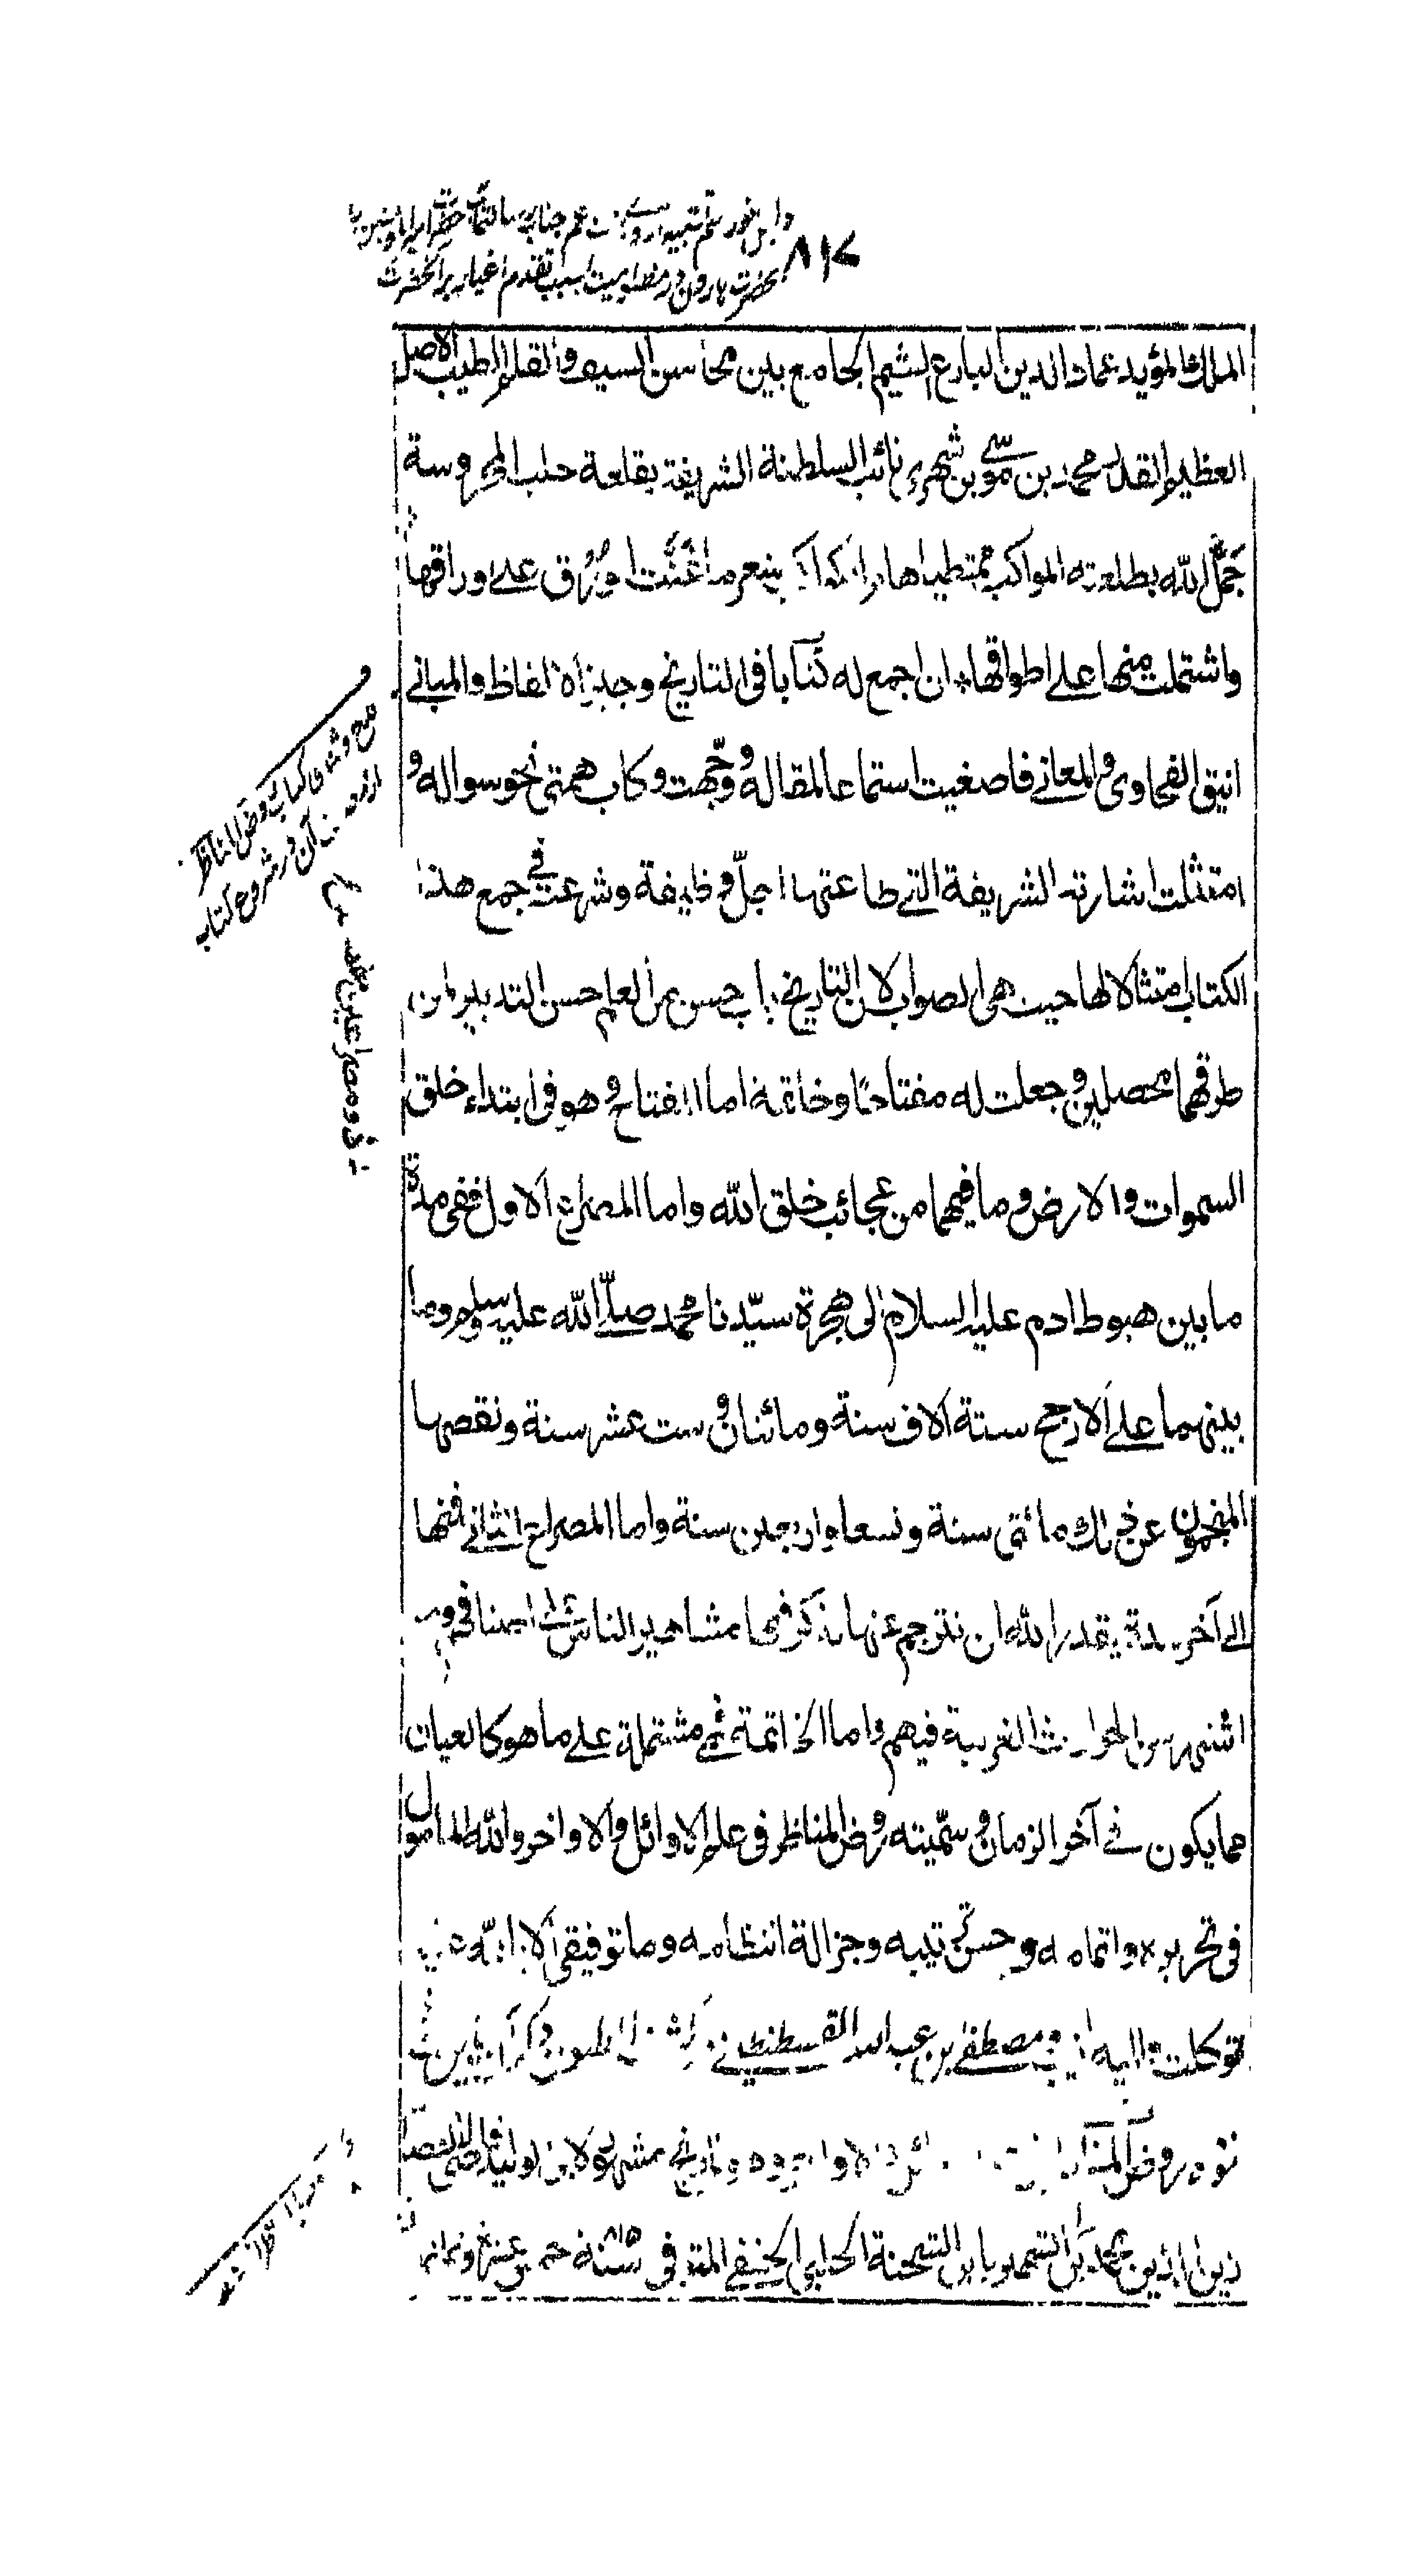 ۸۱۷
بحضرت هارون در مظلومیت بسبب تقدم اغیار بر آنحضرت
الملك المؤيد عماد الدين البارع الشيم الجامع بين محاسن السيف والقلم الطيب الاصل
العظيم القدر محمد بن موسى بن شهرى نائب السلطنة الشريفة بقلعة حلب المحروسة
جمّل الله بطلعته المواكب ممتطيا هام الكواكب بنعم ما غنّت وُرُق على اوراقها
واشتملت منها على اطواقها ان اجمع له كتابا فى التاريخ وجيز الالفاظ والمبانے
انيق الفحاوى والمعانے فاصغيت استماعا لمقاله ووجّهت ركاب همتى نحو سواله و
امتثلت اشارته الشريفة التے طاعتها اجلّ وظيفة وشرعت فے جمع هذا
الكتاب امتثالا لها حيث هى الصواب لان التاريخ باب حسن من العلم حسن التدبير لمن
طرقها المحصلين وجعلت له مفتاحا وخاتمة اما المفتاح وهو فى ابتداء خلق
السموات والارض وما فيهما من عجائب خلق الله واما المصراع الاول ففى مدة
ما بين هبوط ادم عليه السلام الى هجرة سيّدنا محمد صلّى الله عليه وسلم وما
بينهما على الارجح ستة الاف سنة ومائتان وست عشر سنة ونقصها
المنجمون عن ذلك مائتى سنة وتسعا واربعين سنة واما المصراع الثانے فمنها
الى آخر مدة يقدر الله ان نترجم عنها نذكر فيها مشاهير الناس
اشتهر من الحوادث الغريبة فيهم واما الخاتمة فهى مشتملة على ما هو كالعيان
مما يكون فے آخر الزمان وسمّيته روض المناظر فى علم الاوائل والاواخر والله المامول
فى تحريره واتمامه وحسن ترتيبه وجزالة انتظامه وما توفيقى الا بالله عليه
توكلت واليه انيب مصطفى بن عبد الله القسطنطينى در كشف الظنون
روض المناظر
زين الدين محمد بن الشهير بابن الشحنة الحلبى الحنفى المتوفى سنة ۸۱۵ خمس عشرة وثمانمائة